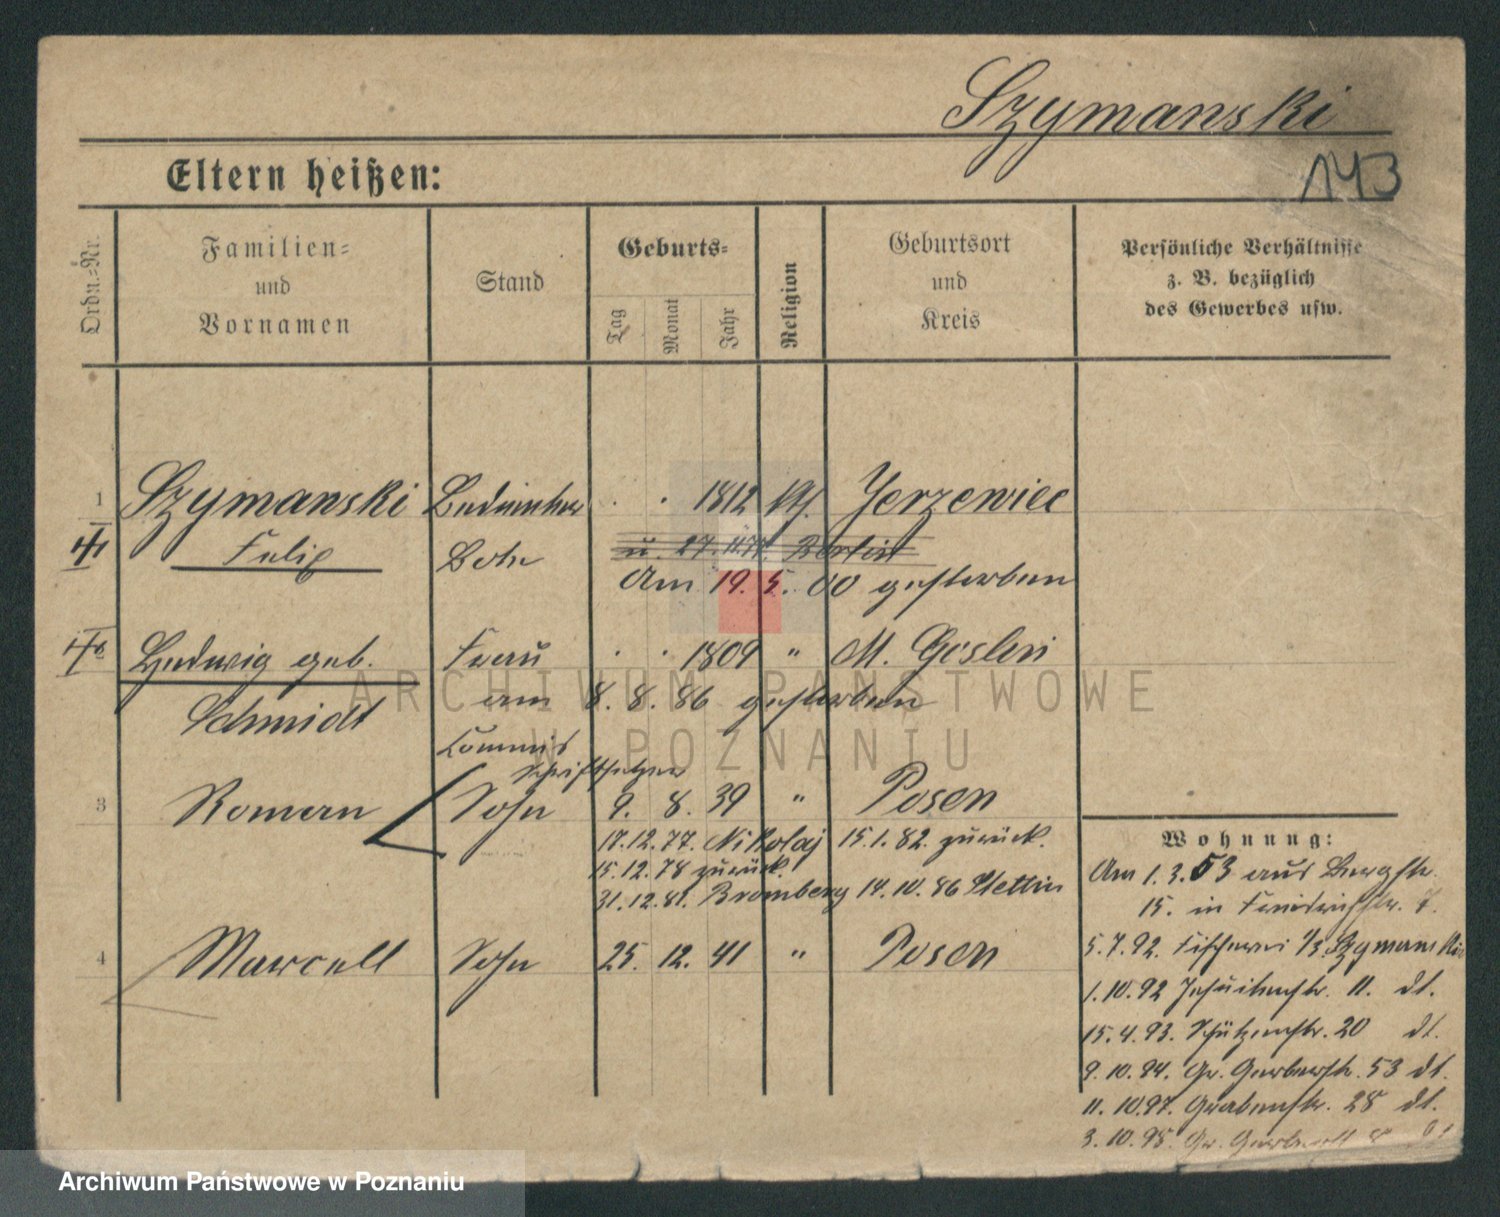 Szymanski
143
Eltern heißen:
Ordn.-Nr.
Familien-
und
Vornamen
Stand
Geburts-
Tag
Monat
Jahr
Religion
Geburtsort
und
Kreis
Persönliche Verhältnisse
z. B. bezüglich
des Gewerbes usw.
1 Szymanski 1812 kth. Jerzewiec
Felix Bote u. 27. 12. 74. Berlin
Am 19. 5. 00 gestorben
Hedwig geb. Frau 1809 " M. Goslin
Schmidt am 8. 8. 86 gestorben
Commis
Schriftsetzer
3 Roman Sohn 9. 8. 39 " Posen
17. 12. 77. Nikolaj 15. 1. 82. zurück.
15. 12. 78 zurück.
31. 12. 81. Bromberg 14. 10. 86 Stettin
4 Marcell Sohn 25. 12. 41 " Posen
Wohnung:
Am 1. 3. 53 aus Bergstr.
15. in Friedrichstr. 7.
5. 7. 92. Fischerei 1/3 Szymanski
1. 10. 92 Jesuitenstr. 11. dt.
15. 4. 93. Schützenstr. 20 dt.
9. 10. 94. Gr. Gerberstr. 53 dt.
11. 10. 97. Grabenstr. 25 dt.
3. 10. 98. Gr. Gerberstr
ARCHIWUM PAŃSTWOWE
W POZNANIU
Archiwum Państwowe w Poznaniu